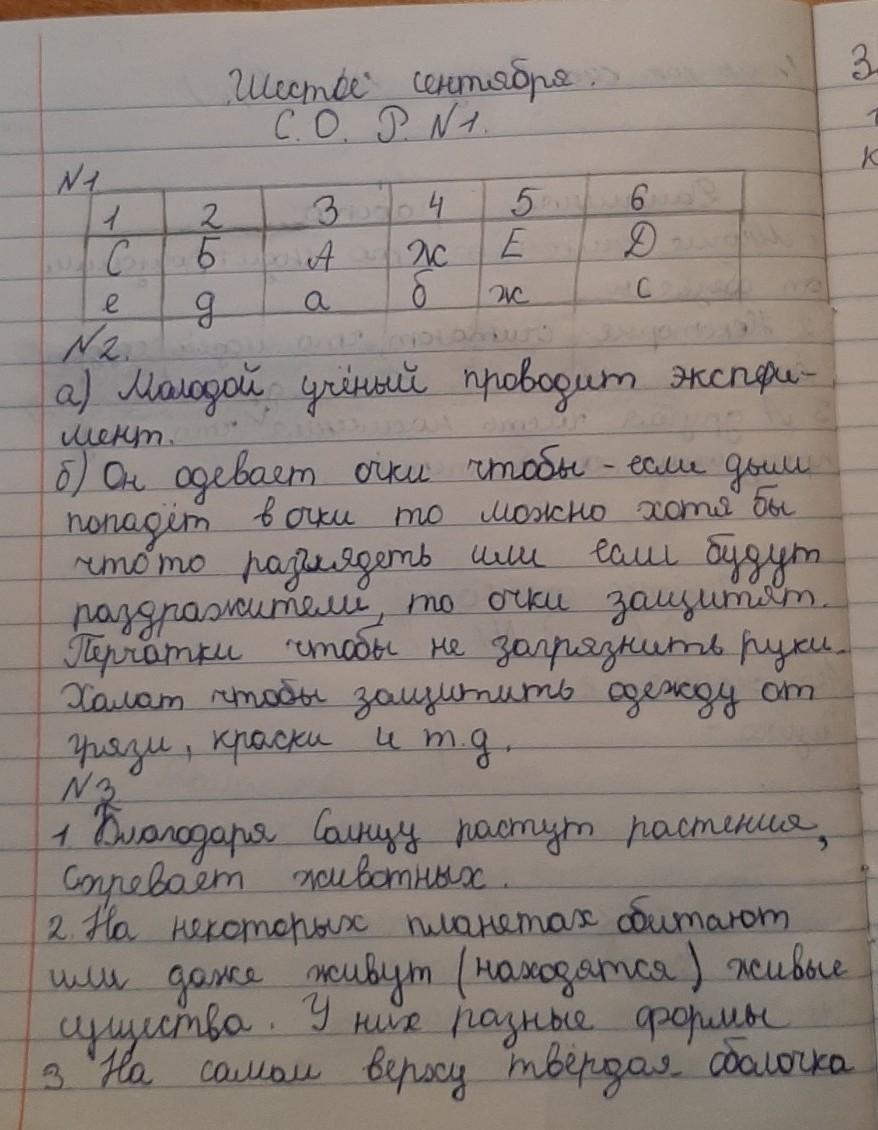 Шестое сентября.
С. О. Р. N1.
N1
1 2 3 4 5 6
С Б А Ж Е Д
е д а б ж с
N2.
а) Молодой учёный проводит экспфи-
мент.
б) Он одевает очки чтобы - если дым
попадёт в очки то можно хотя бы
что то разглядеть или если будут
раздражители, то очки защитят.
Перчатки чтобы не загрязнить руки.
Халат чтобы защитить одежду от
грязи, краски и т.д.
N3
1 Благодаря Солнцу растут растения,
Согревает животных.
2. На некоторых планетах обитают
или даже живут (находятся) живые
существа. У них разные формы
3 На самом верху твёрдая оболочка
З
к